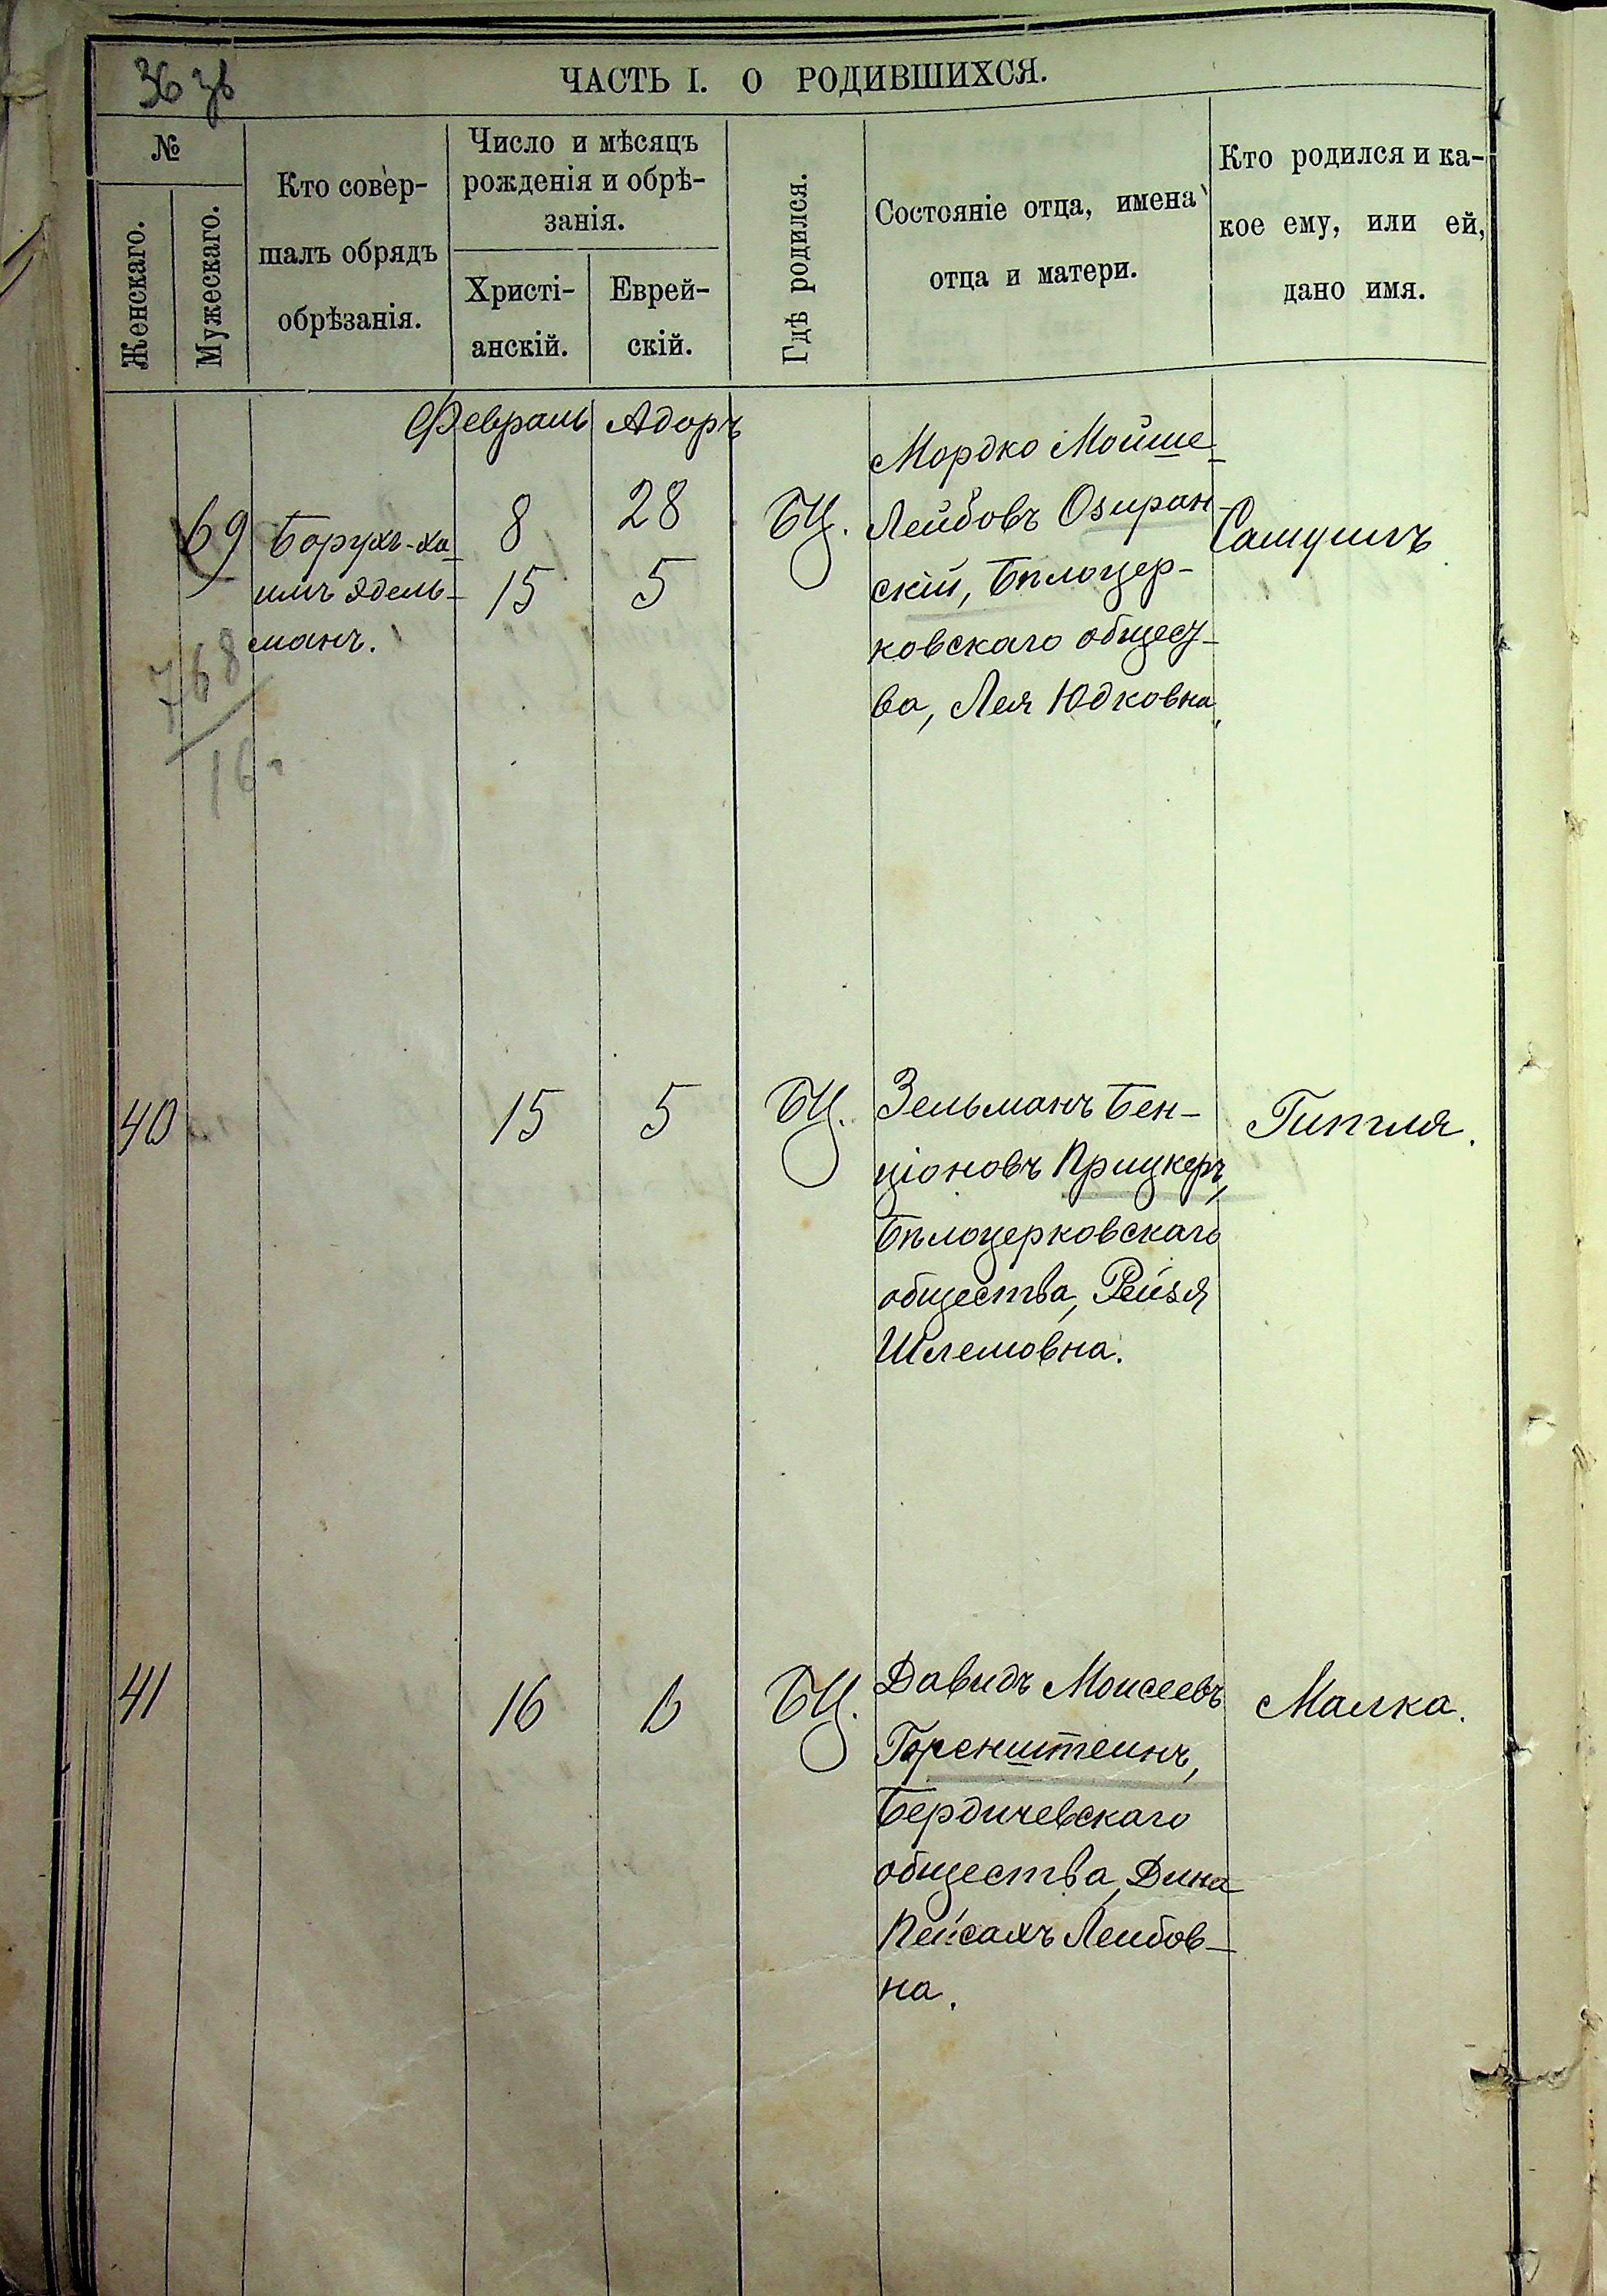 36 зв
ЧАСТЬ I. О РОДИВШИХСЯ.
№
Женскаго.
Мужескаго.
Кто совер-
шалъ обрядъ
обрѣзанія.
Число и мѣсяцъ
рожденія и обрѣ-
занія.
Христі-
анскій.
Еврей-
скій.
Гдѣ родился.
Состояніе отца, имена
отца и матери.
Кто родился и ка-
кое ему, или ей,
дано имя.
Февраль Адоръ
69
Борухъ-ха-
имъ Эдель-
манъ.
8
15
28
5
БЦ.
Мордко Мойше-
Лейбовъ Озиран-
скій, Бѣлоцер-
ковскаго общест-
ва, Лея Юдковна.
Самуилъ
768
16
40
15
5
БЦ.
Зельманъ Бен-
ціоновъ Прицкеръ,
Бѣлоцерковскаго
общества, Рейзя
Шлемовна.
Гитля.
41
16
6
БЦ.
Давидъ Моисеевъ
Горенштейнъ,
Бердичевскаго
общества, Дина
Пейсахъ Лейбов-
на.
Малка.